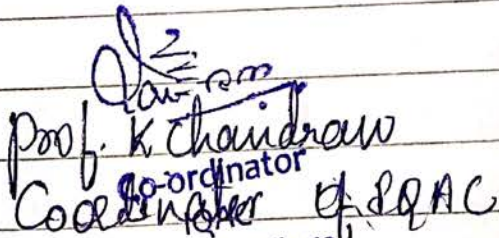 Prof. K Chandran
Co-ordinator
Coordinator of IQAC